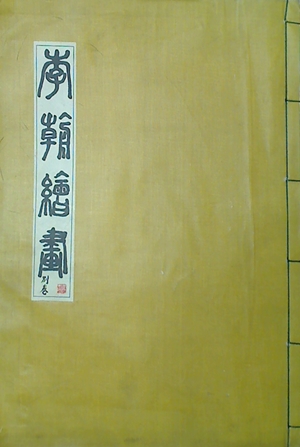 李朝繪畫
別卷